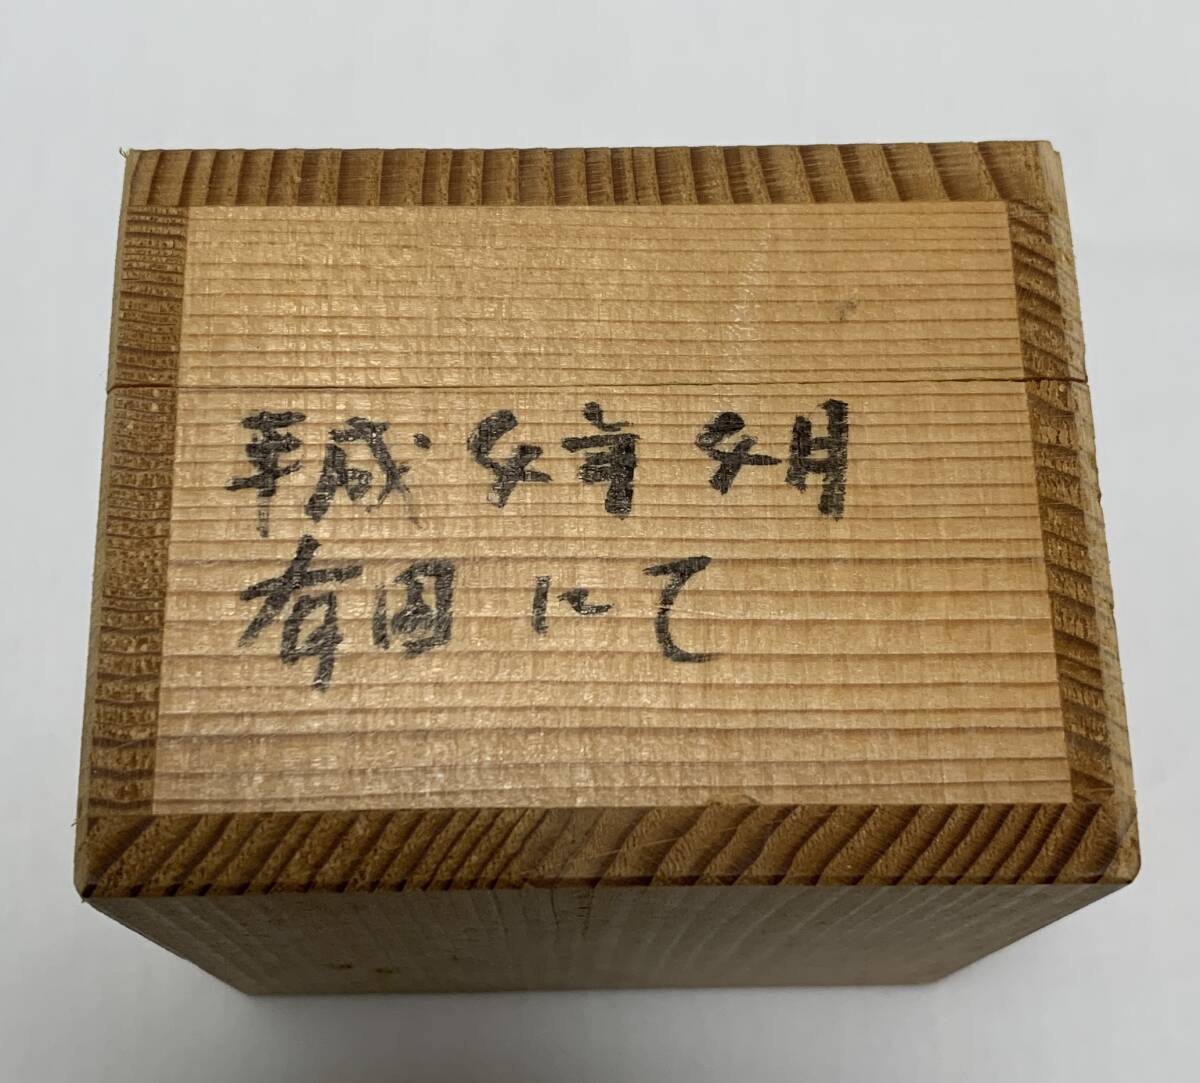 平成4年4月
有田にて